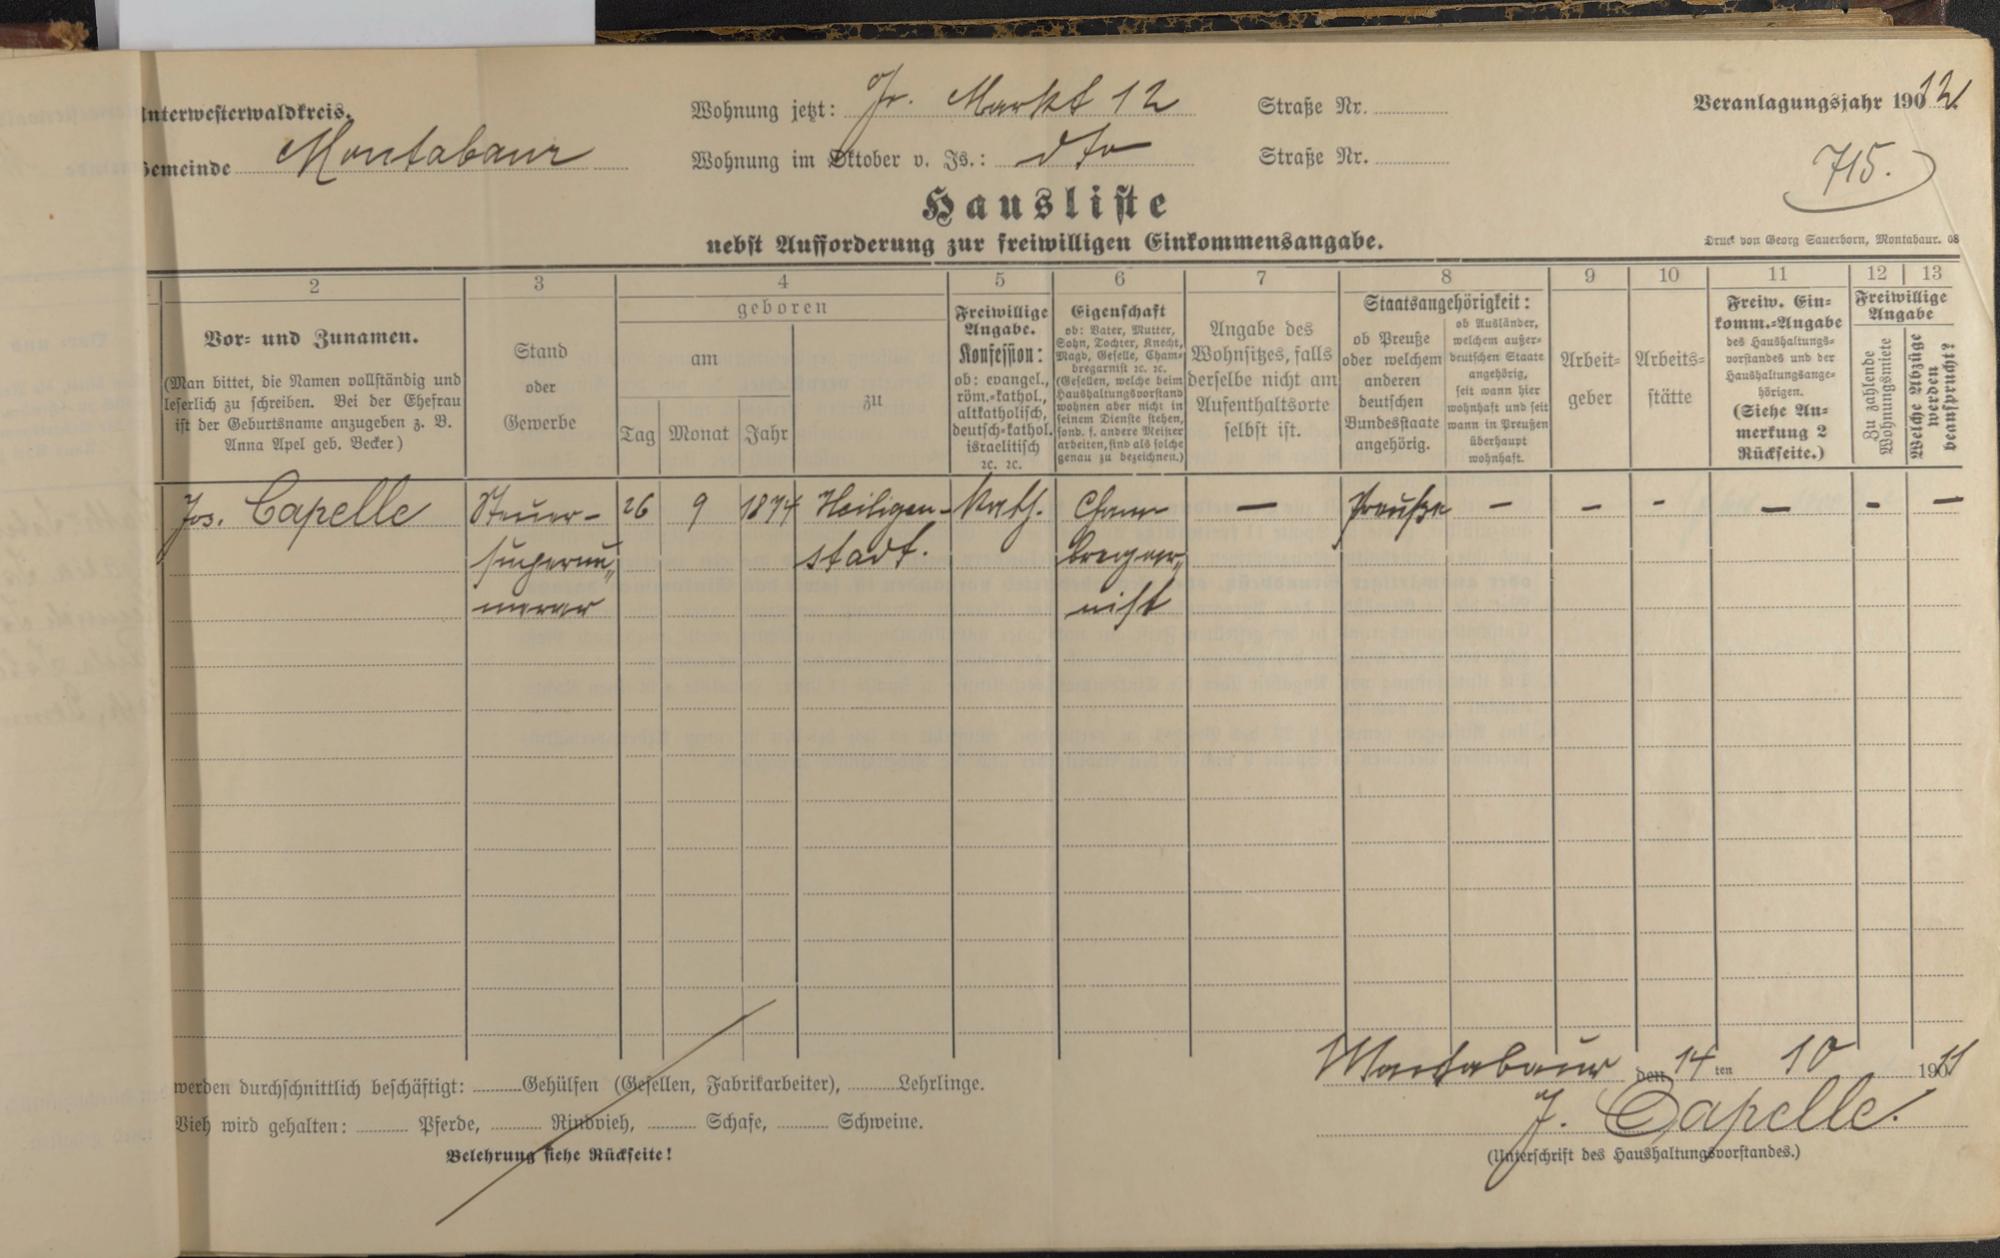 Unterwesterwaldkreis.
Gemeinde Montabaur
Wohnung jetzt: Gr. Markt 12 Straße Nr.
Wohnung im Oktober v. Js.: dto Straße Nr.
Veranlagungsjahr 1912
715.
Hausliste
nebst Aufforderung zur freiwilligen Einkommensangabe.
Druck von Georg Sauerborn, Montabaur. 08
2 3 4 5 6 7 8 9 10 11 12 13
Vor- und Zunamen.
(Man bittet, die Namen vollständig und
leserlich zu schreiben. Bei der Ehefrau
ist der Geburtsname anzugeben z. B.
Anna Apel geb. Becker)
Stand
oder
Gewerbe
geboren
am
Tag Monat Jahr
zu
Freiwillige
Angabe.
Konfession:
ob: evangel.,
röm.-kathol.,
altkatholisch,
deutsch-kathol.
israelitisch
ꝛc. ꝛc.
Eigenschaft
ob: Vater, Mutter,
Sohn, Tochter, Knecht,
Magd, Geselle, Cham-
bregarnist ꝛc. ꝛc.
(Gesellen, welche beim
Haushaltungsvorstand
wohnen aber nicht in
seinem Dienste stehen,
sond. f. andere Meister
arbeiten, sind als solche
genau zu bezeichnen.)
Angabe des
Wohnsitzes, falls
derselbe nicht am
Aufenthaltsorte
selbst ist.
Staatsangehörigkeit:
ob Preuße
oder welchem
anderen
deutschen
Bundesstaate
angehörig.
ob Ausländer,
welchem außer-
deutschen Staate
angehörig,
seit wann hier
wohnhaft und seit
wann in Preußen
überhaupt
wohnhaft.
Arbeit-
geber
Arbeits-
stätte
Freiw. Ein-
komm.-Angabe
des Haushaltungs-
vorstandes und der
Haushaltungsange-
hörigen.
(Siehe An-
merkung 2
Rückseite.)
Freiwillige
Angabe
Zu zahlende
Wohnungsmiete
Welche Abzüge
werden
beansprucht?
Jos. Capelle Steuer- 26 9 1874 Heiligen- Kath. Cham- — Preuße — — - — - —
supernu„ stadt. bregar„
merar nist
werden durchschnittlich beschäftigt: Gehülfen (Gesellen, Fabrikarbeiter), Lehrlinge.
Vieh wird gehalten: Pferde, Rindvieh, Schafe, Schweine.
Belehrung siehe Rückseite!
Montabaur den 14 ten 10 1911
J. Capelle.
(Unterschrift des Haushaltungsvorstandes.)